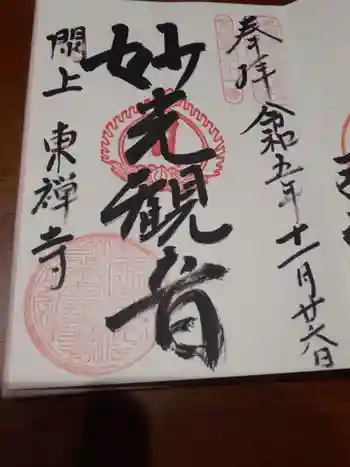 奉拝
令和五年十一月廿六日
妙光観音
閖上
東禅寺